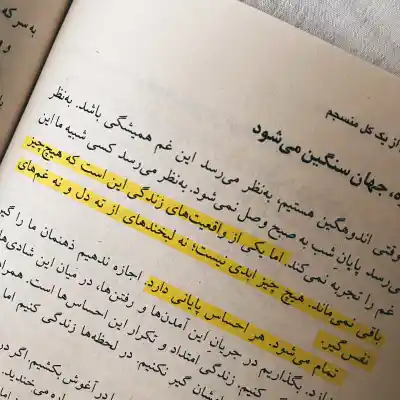 به سر که
از یک کل منسجم
ه، جهان سنگین می‌شود
وقتی اندوهگین هستیم، به‌نظر می‌رسد این غم همیشگی باشد. به‌نظر
می‌رسد پایان شب به صبح وصل نمی‌شود. به‌نظر می‌رسد کسی شبیه ما این
غم را تجربه نمی‌کند. اما یکی از واقعیت‌های زندگی این است که هیچ‌چیز
باقی نمی‌ماند. هیچ چیز ابدی نیست؛ نه لبخندهای از ته دل و نه غم‌های
نفس‌گیر.
تمام می‌شود. هر احساس پایانی دارد. اجازه ندهیم ذهنمان ما را گیر
بگذاریم در جریان این آمدن‌ها و رفتن‌ها، در میان این شادی‌ها
کنیم. زندگی امتداد و تکرار این احساس‌ها است. همراه
گیر نکنیم. در لحظه‌ها زندگی کنیم اما
را در آغوش بکشیم. اگر در
می‌خندید.